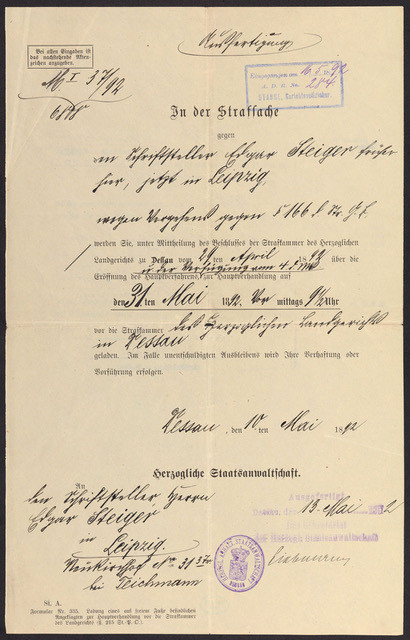 Ausfertigung
Bei allen Eingaben ist
das nachstehende Akten-
zeichen anzugeben.
M. I 37/92
Eingegangen am 16. 5. 92
A. D. K. No. 284
In der Strafsache
gegen
den Schriftsteller Edgar Steiger früher
hier, jetzt in Leipzig,
wegen Vergehens gegen § 166 d. Str. G. B.
werden Sie, unter Mittheilung des Beschlusses der Strafkammer des Herzoglichen
Landgerichts zu Dessau vom 29ten April 1892 über die
u. der Verfügung vom 4. d. Mts
Eröffnung des Hauptverfahrens, zur Hauptverhandlung auf
den 31ten Mai 1892, Vor mittags 9½ Uhr
vor die Strafkammer des Herzoglichen Landgerichts
in Dessau
geladen. Im Falle unentschuldigten Ausbleibens wird Ihre Verhaftung oder
Vorführung erfolgen.
Dessau, den 10ten Mai 1892
Herzogliche Staatsanwaltschaft.
An
den Schriftsteller Herrn
Edgar Steiger
in
Leipzig.
Neukirchhof No 31 3Tr
bei Teichmann
Ausgefertigt
Dessau, den 13. Mai 1892
der Herzogl. Staatsanwaltschaft
St. A.
Formular Nr. 325. Ladung eines auf freiem Fuße befindlichen
Angeklagten zur Hauptverhandlung vor die Strafkammer
des Landgerichts (§ 215 St. P. O.)